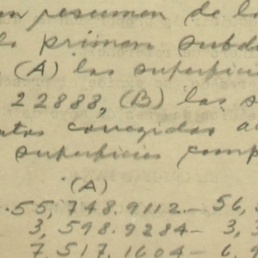 un resumen de lo
primera subdi
(A) las superfici
22888, (B) las s
corregidas a
superficies comp
(A)
55,748.9112.— 56,
3,598.9284— 3,3
7,517.1604— 6,9